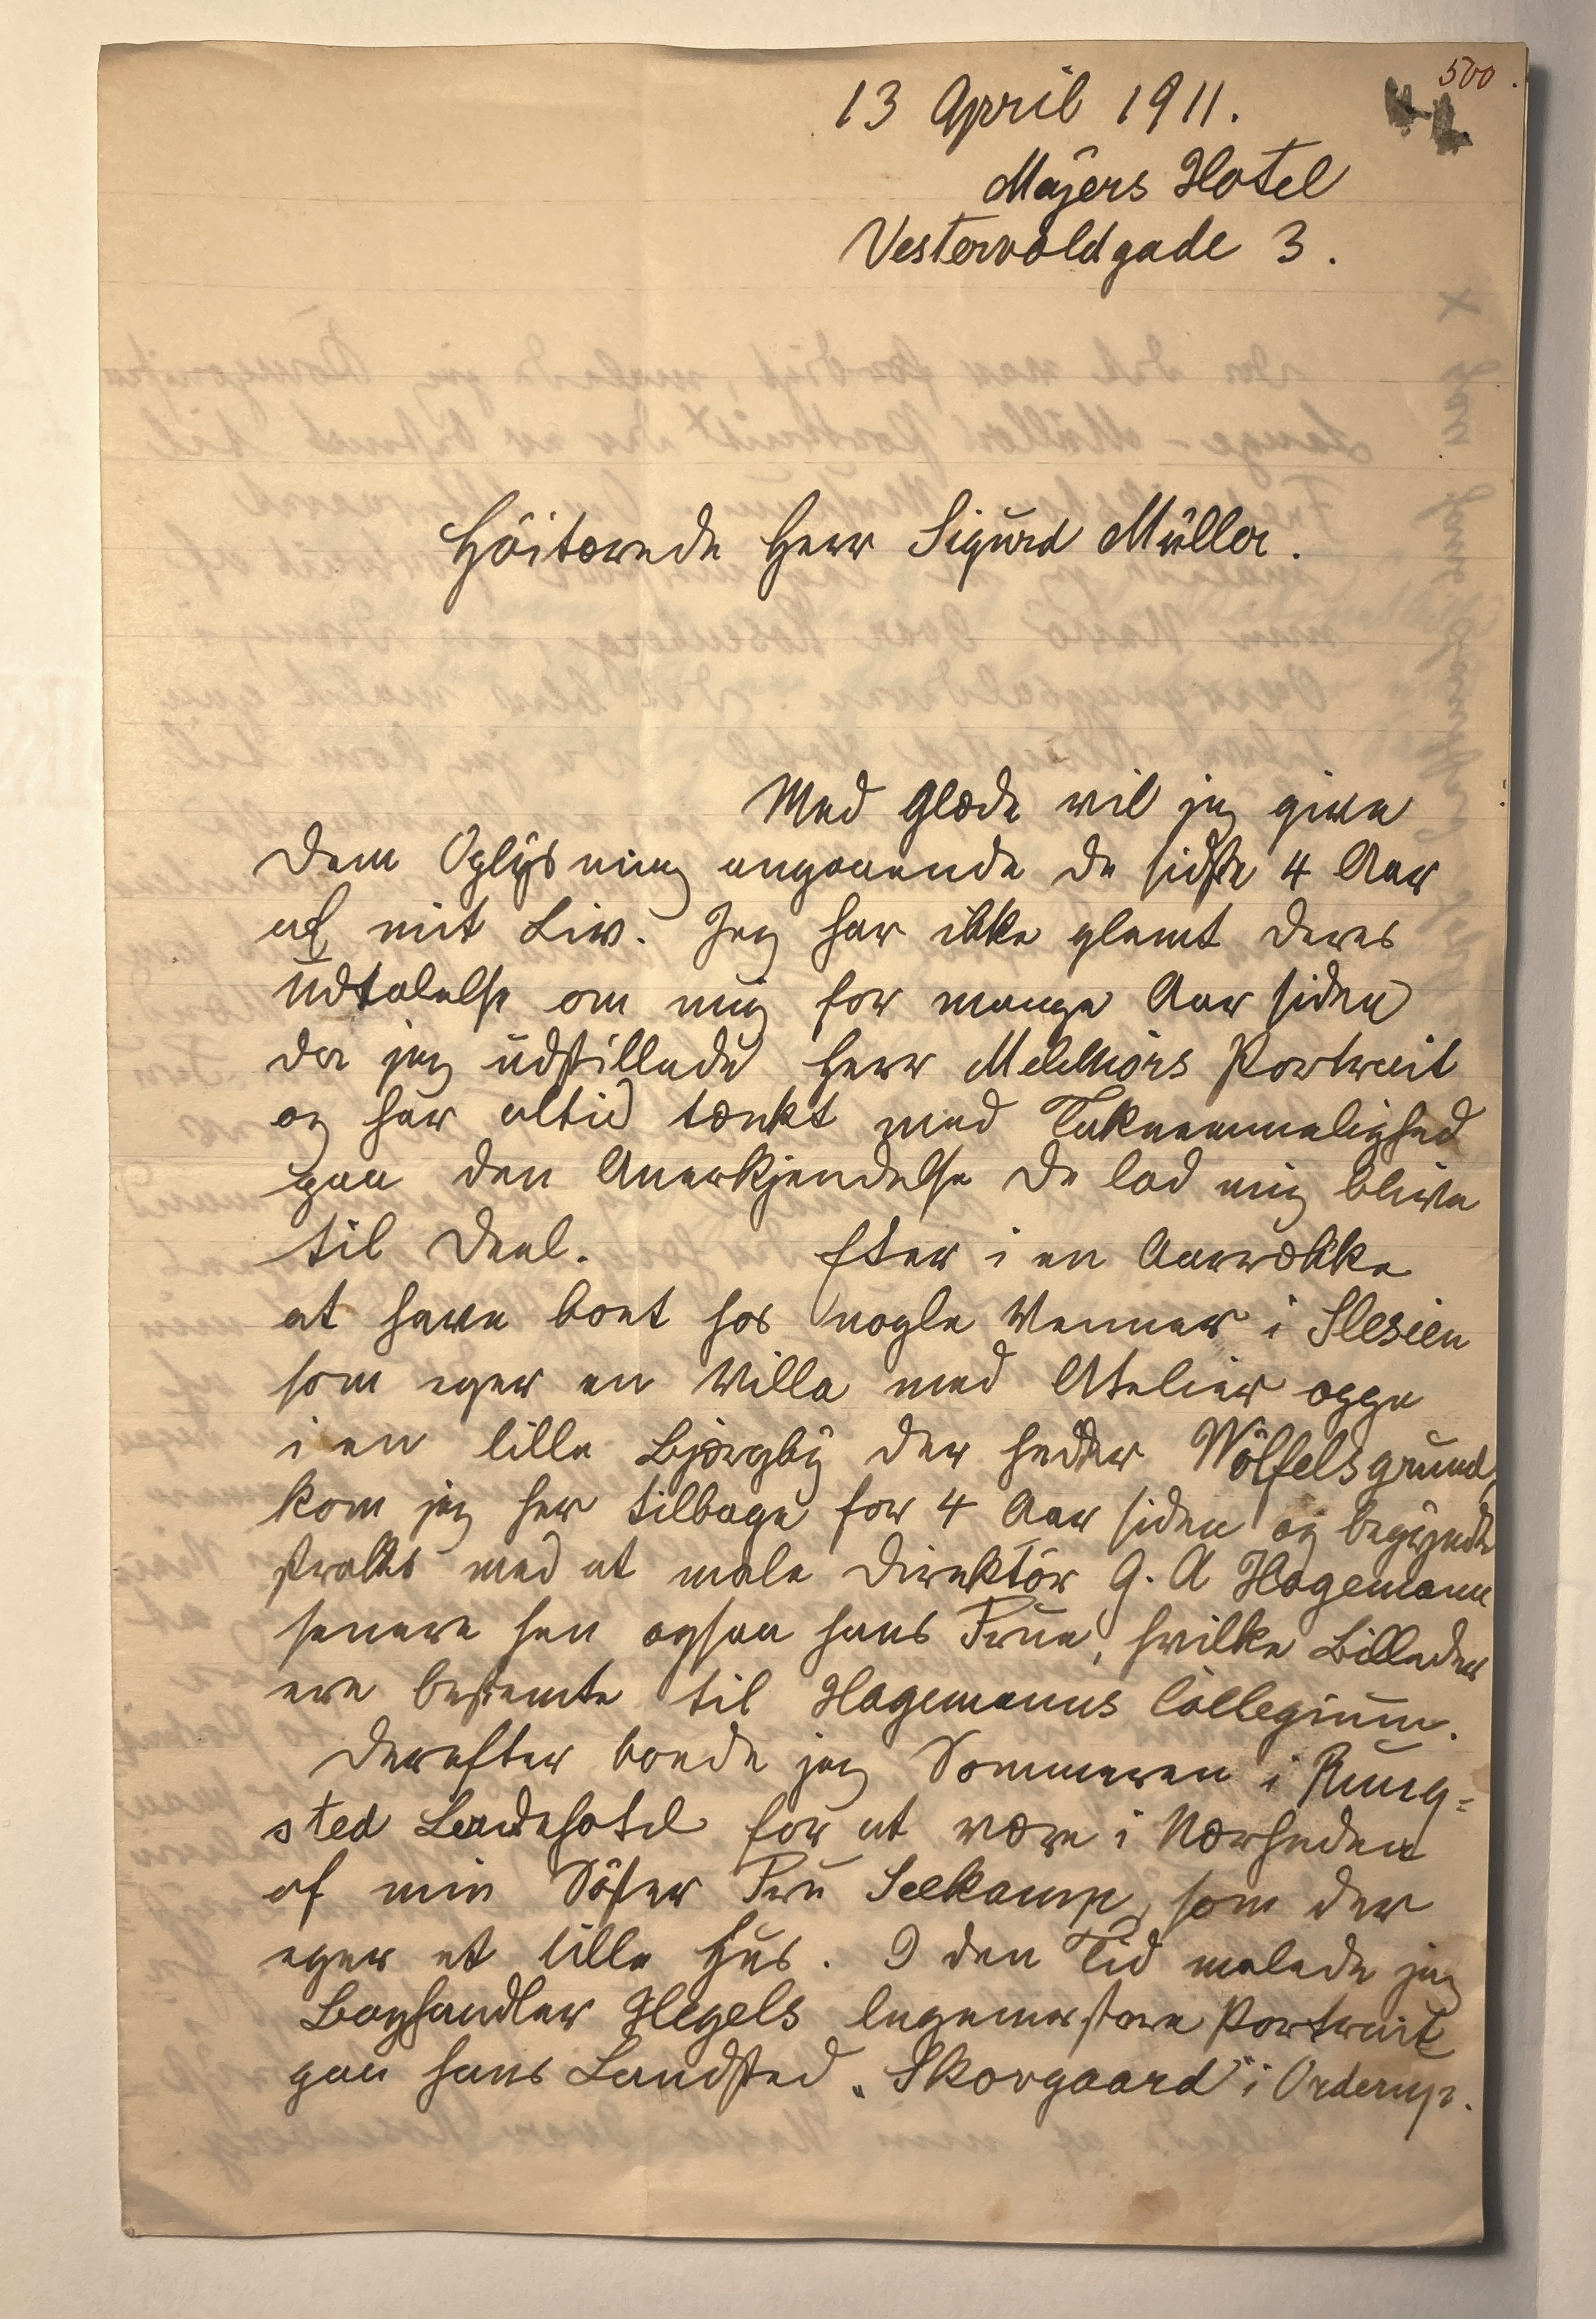 500.
13 April 1911.
Mayers Hotel
Vestervoldgade 3.
Höitærede Herr Sigurd Müller.
Med Glæde vil jeg give
Dem Oplysning angaaende de sidste 4 Aar
af mit Liv. Jeg har ikke glemt Deres
Udtalelse om mig for mange Aar siden
da jeg udstillede Herr Melchiors Portrait
og har altid tænkt med Taknemmelighed
paa den Anerkjendelse De lod mig blive
til Deel. Efter i en Aarrække
at have boet hos nogle Venner i Slesien
som eger en Villa med Atelier oppe
i en lille Bjergby der hedder Wölfelsgrund,
kom jeg her tilbage for 4 Aar siden og begyndte
straks med at male Direktör G. A Hagemann
senere hen ogsaa hans Frue, hvilke Billeder
ere bestemte til Hagemanns Collegium.
Derefter boede jeg Sommeren i Rung=
sted Badehotel for at være i Nærheden
af min Söster Fru Seekamp, som der
eger et lille Hus. I den Tid malede jeg
Boghandler Hegels legemsstore Portrait
paa hans Landsted „Skovgaard" i Ordrup.